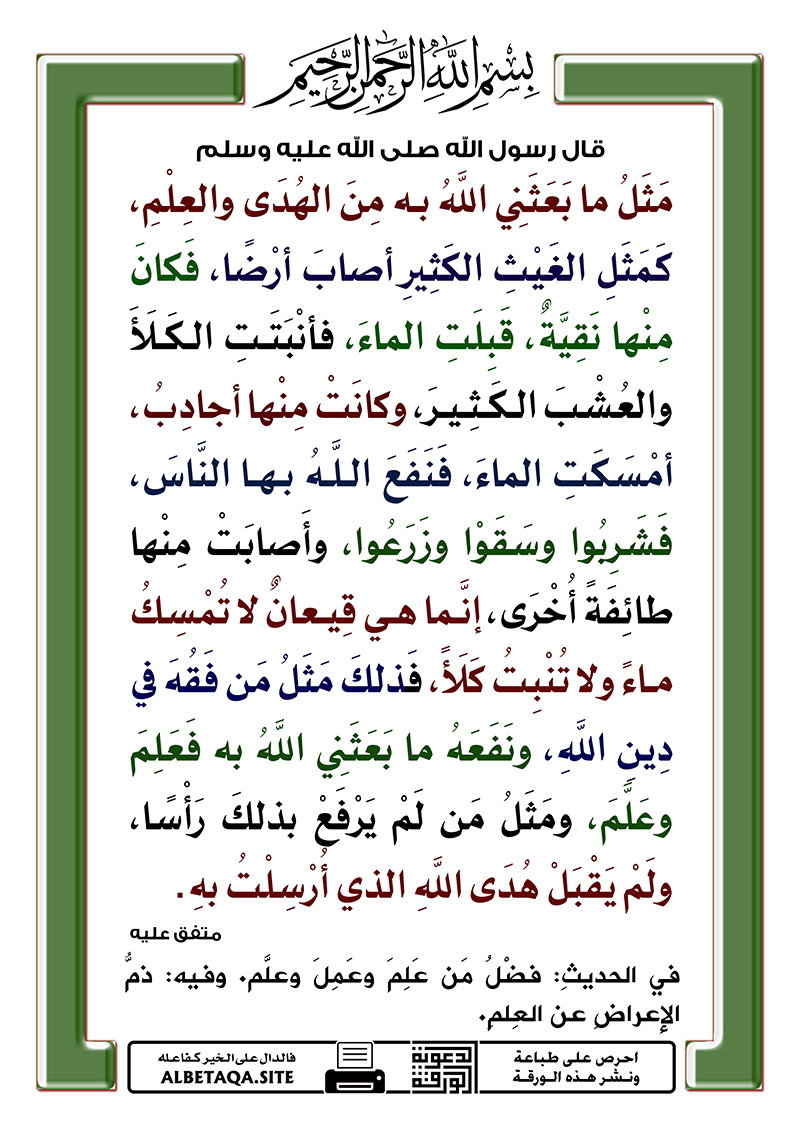 بِسْمِ اللَّهِ الرَّحْمَنِ الرَّحِيمِ
قال رسول الله صلى الله عليه وسلم
مَثَلُ ما بَعَثَنِي اللَّهُ به مِنَ الهُدَى والعِلْمِ،
كَمَثَلِ الغَيْثِ الكَثِيرِ أصابَ أرْضًا، فَكانَ
مِنْها نَقِيَّةٌ، قَبِلَتِ الماءَ، فأنْبَتَتِ الكَلَأَ
والعُشْبَ الكَثِيرَ، وكانَتْ مِنْها أجادِبُ،
أمْسَكَتِ الماءَ، فَنَفَعَ اللَّهُ بها النَّاسَ،
فَشَرِبُوا وسَقَوْا وزَرَعُوا، وأَصابَتْ مِنْها
طائِفَةً أُخْرَى، إنَّما هي قِيعانٌ لا تُمْسِكُ
ماءً ولا تُنْبِتُ كَلَأً، فَذلكَ مَثَلُ مَن فَقُهَ في
دِينِ اللَّهِ، ونَفَعَهُ ما بَعَثَنِي اللَّهُ به فَعَلِمَ
وعَلَّمَ، ومَثَلُ مَن لَمْ يَرْفَعْ بذلكَ رَأْسًا،
ولَمْ يَقْبَلْ هُدَى اللَّهِ الذي أُرْسِلْتُ بهِ.
متفق عليه
في الحديثِ: فضْلُ مَن عَلِمَ وعَمِلَ وعلَّم. وفيه: ذمُّ
الإعراضِ عن العِلمِ.
احرص على طباعة
ونشر هذه الورقة
الدعوية
الورقة
فالدال على الخير كفاعله
ALBETAQA.SITE